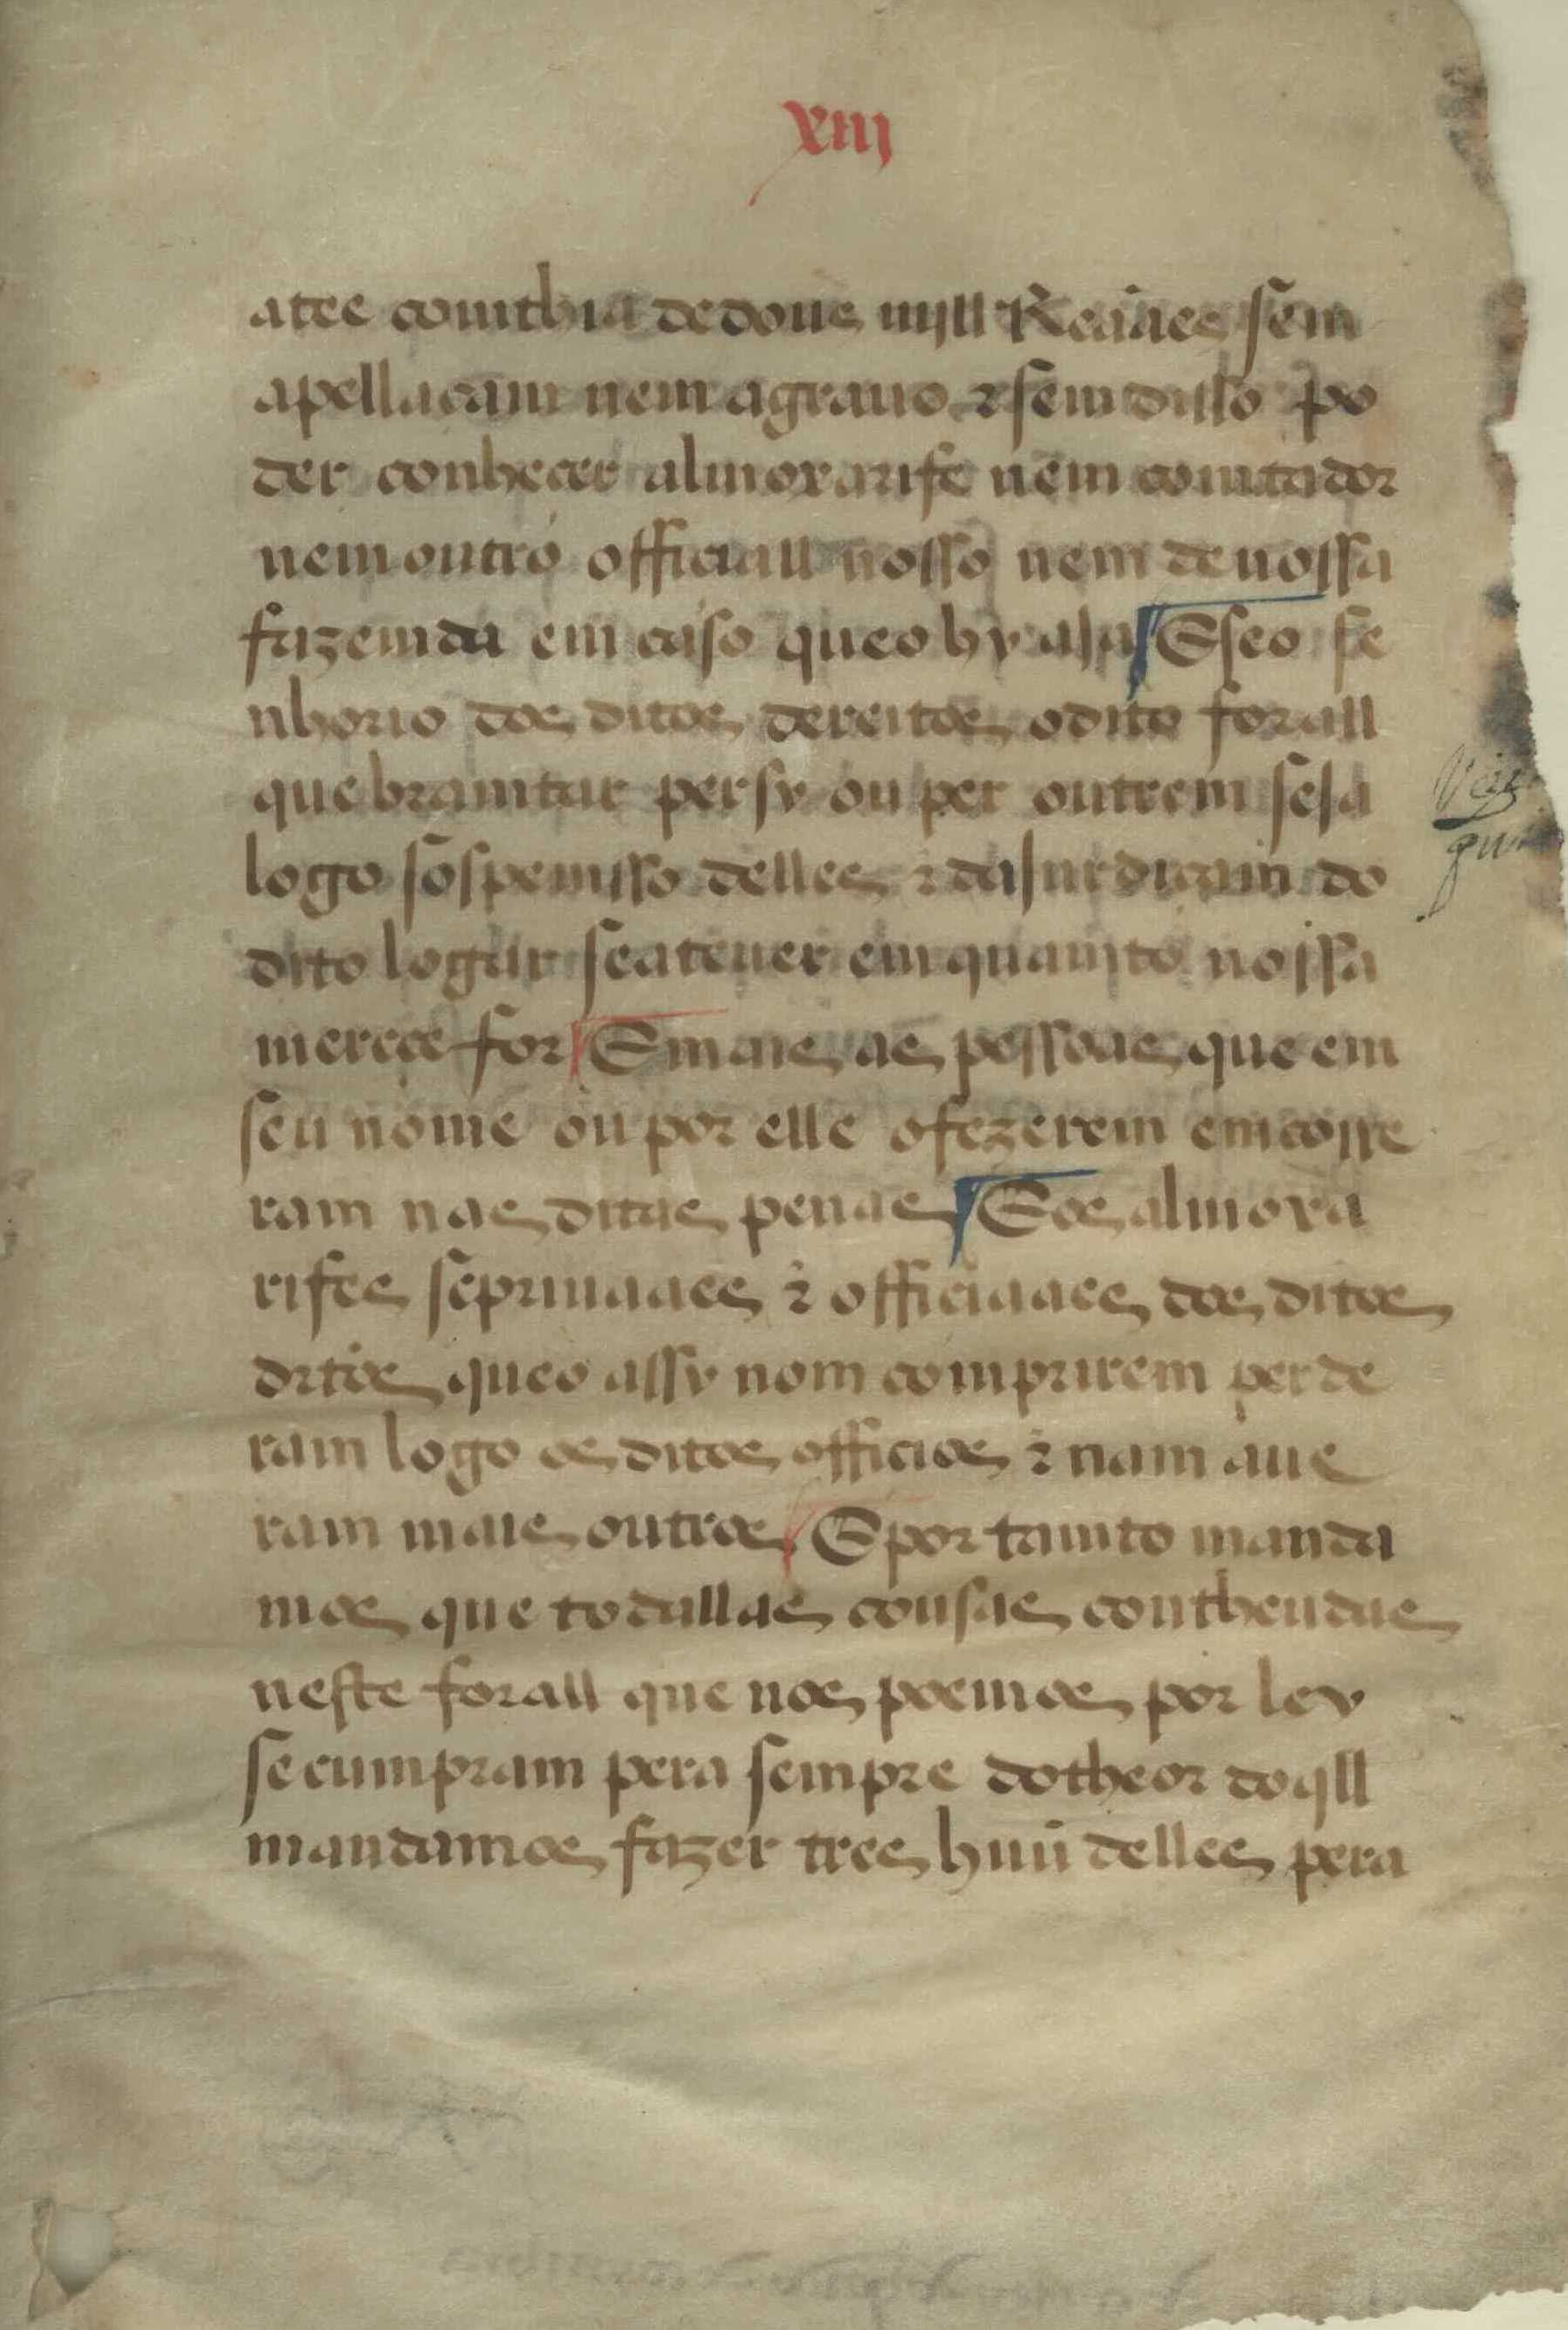 xiij
atee comthia de dous mjll Reaaes sem
apellaçam nem agrauo ⁊ sem disso po
der conhecer almoxarife nem comtador
nem outro officiall nosso nem de nossa
fazemda em caso que o hy aja E se o se
nhorio dos ditos dereitos o dito forall
quebramtar per sy ou per outrem seja
logo sospemsso delles ⁊ da jurdiçam do
dito logar se a teuer em quamto nossa
merçee for E mais as pessoas que em
seu nome ou por elle o fezerem emcorre
ram nas ditas penas E os almoxa
rifes scpriuaaes ⁊ officiaaes dos ditos
drtos que o assy nom comprirem perde
ram logo os ditos officios ⁊ nam aue
ram mais outros E por tamto manda
mos que todallas cousas contheudas
neste forall que nos poemos por ley
se cumpram pera sempre do theor do qll
mandamos fazer tres huũ delles pera